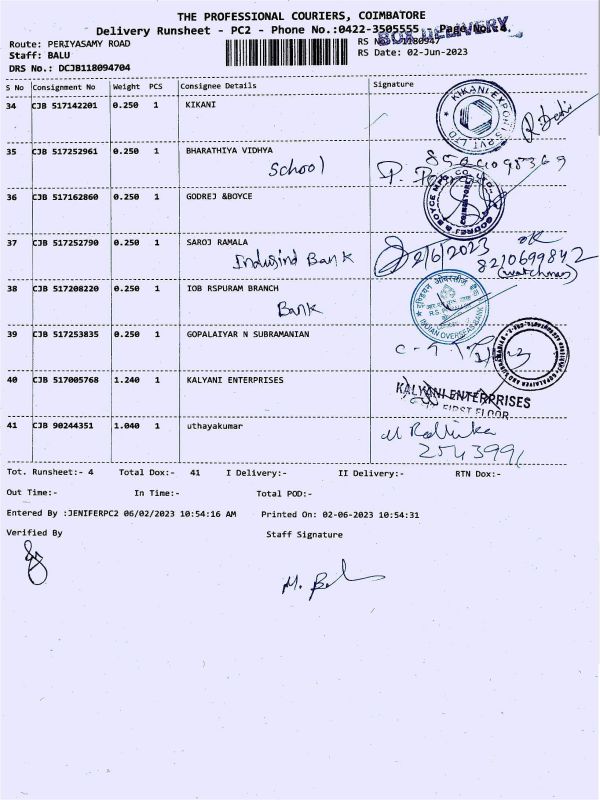 THE PROFESSIONAL COURIERS, COIMBATORE
Delivery Runsheet - PC2 - Phone No.:0422-3505555 Page No.:
BOX DELIVERY
Route: PERIYASAMY ROAD
RS No.: 1180947
Staff: BALU
RS Date: 02-Jun-2023
DRS No.: DCJB118094704
S No Consignment No Weight PCS Consignee Details Signature
34 CJB 517142201 0.250 1 KIKANI
KIKANI EXPORTS PVT. LTD.
35 CJB 517252961 0.250 1 BHARATHIYA VIDHYA
School
36 CJB 517162860 0.250 1 GODREJ &BOYCE
37 CJB 517252790 0.250 1 SAROJ RAMALA
Indusind Bank
2/6/2023
OK
8210699842
(watchman)
38 CJB 517208220 0.250 1 IOB RSPURAM BRANCH
Bank
इण्डियन ओवरसीज़ बैंक
INDIAN OVERSEAS BANK
39 CJB 517253835 0.250 1 GOPALAIYAR N SUBRAMANIAN
40 CJB 517005768 1.240 1 KALYANI ENTERPRISES
KALYANI ENTERPRISES
FIRST FLOOR
41 CJB 90244351 1.040 1 uthayakumar
Tot. Runsheet:- 4 Total Dox:- 41 I Delivery:- II Delivery:- RTN Dox:-
Out Time:- In Time:- Total POD:-
Entered By :JENIFERPC2 06/02/2023 10:54:16 AM Printed On: 02-06-2023 10:54:31
Verified By Staff Signature